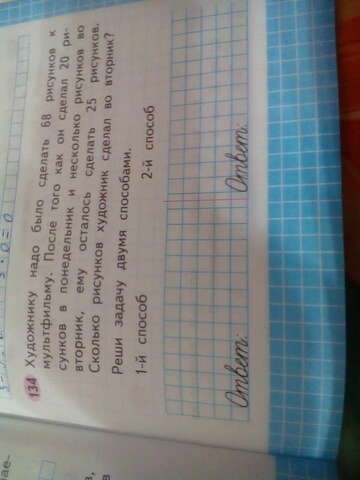 3 · 0 = 0
134 Художнику надо было сделать 68 рисунков к
мультфильму. После того как он сделал 20 ри-
сунков в понедельник и несколько рисунков во
вторник, ему осталось сделать 25 рисунков.
Сколько рисунков художник сделал во вторник?
Реши задачу двумя способами.
1-й способ 2-й способ
Ответ: Ответ: